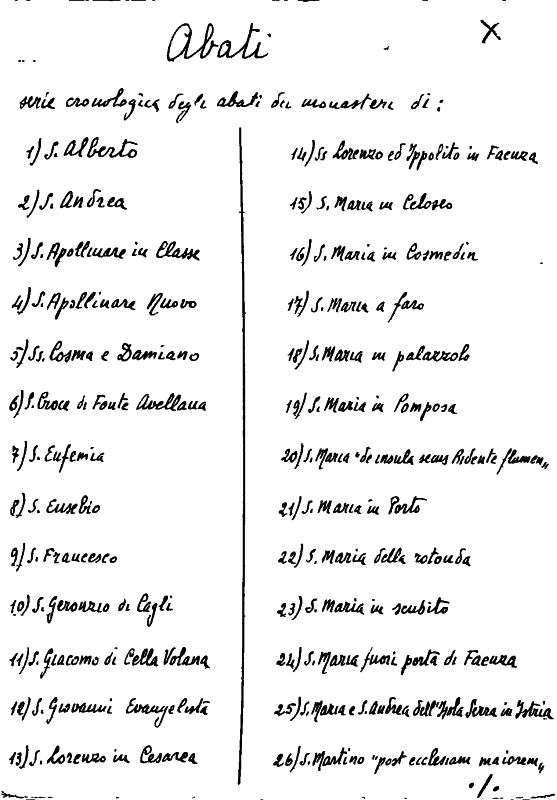 X
Abati
serie cronologica degli abati dei monasteri di:
1) S. Alberto
2) S. Andrea
3) S. Apollinare in Classe
4) S. Apollinare Nuovo
5) Ss. Cosma e Damiano
6) S. Croce di Fonte Avellana
7) S. Eufemia
8) S. Eusebio
9) S. Francesco
10) S. Geronzio di Cagli
11) S. Giacomo di Cella Volana
12) S. Giovanni Evangelista
13) S. Lorenzo in Cesarea
14) Ss Lorenzo ed Ippolito in Faenza
15) S. Maria in Celoseo
16) S. Maria in Cosmedin
17) S. Maria a faro
18) S. Maria in palazzolo
19) S. Maria in Pomposa
20) S. Maria "de insula secus Bidente flumen„
21) S. Maria in Porto
22) S. Maria della rotonda
23) S. Maria in scubito
24) S. Maria fuori porta di Faenza
25) S. Maria e S. Andrea dell'Isola Serra in Istria
26) S. Martino "post ecclesiam maiorem„
./.